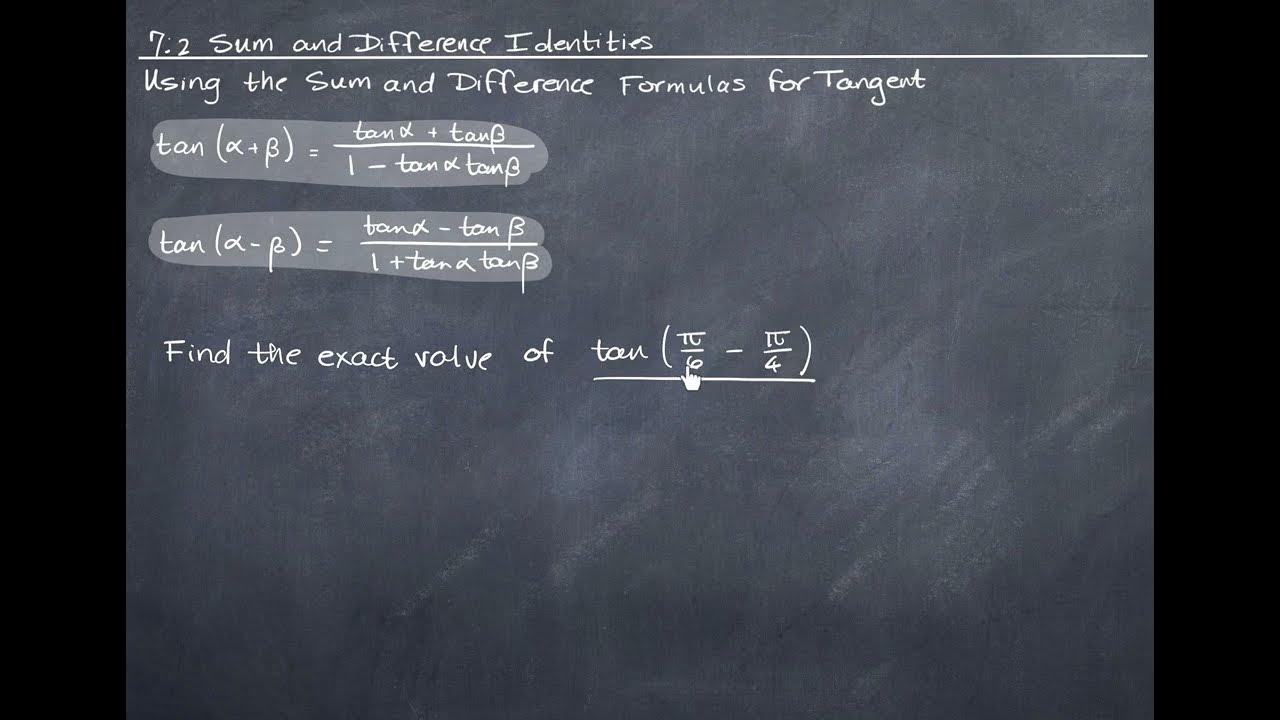 7.2 Sum and Difference Identities
Using the Sum and Difference Formulas for Tangent
tan(α+β) = (tanα + tanβ)/(1 − tanα tanβ)
tan(α−β) = (tanα − tanβ)/(1 + tanα tanβ)
Find the exact value of tan(π/6 − π/4)